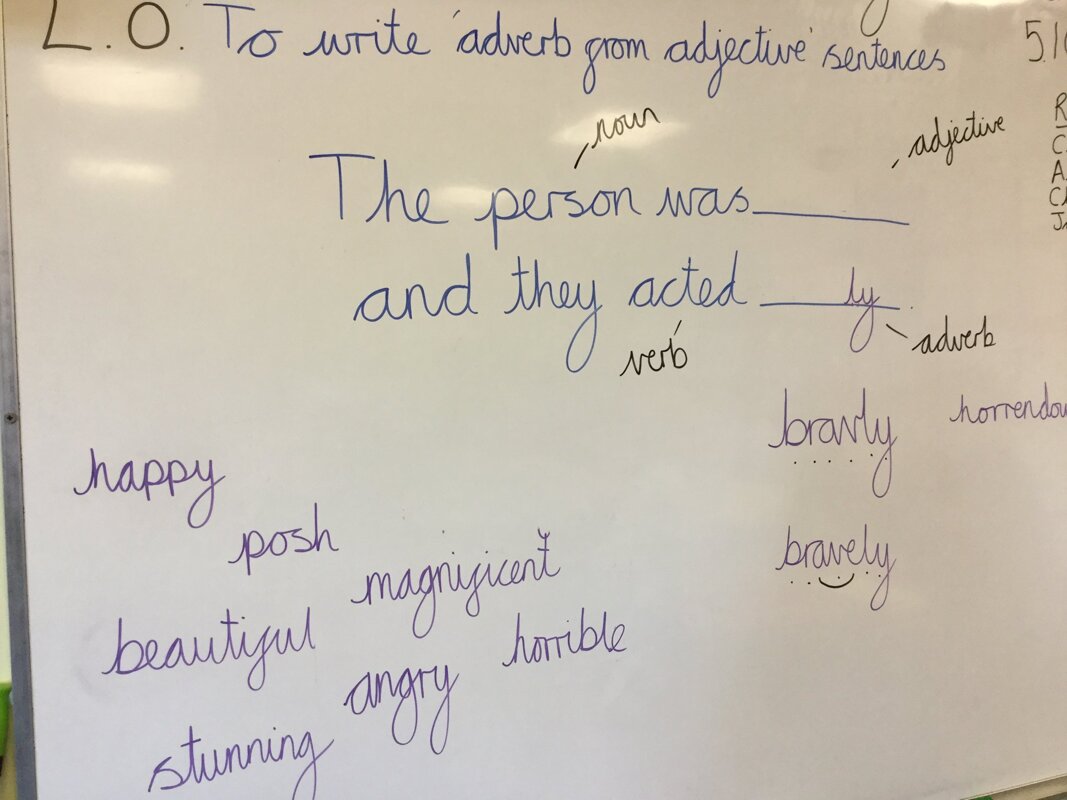 L.O. To write 'adverb from adjective' sentences
noun
adjective
The person was
and they acted ly
verb
adverb
bravly
happy
posh
bravely
magnificent
beautiful
horrible
angry
stunning